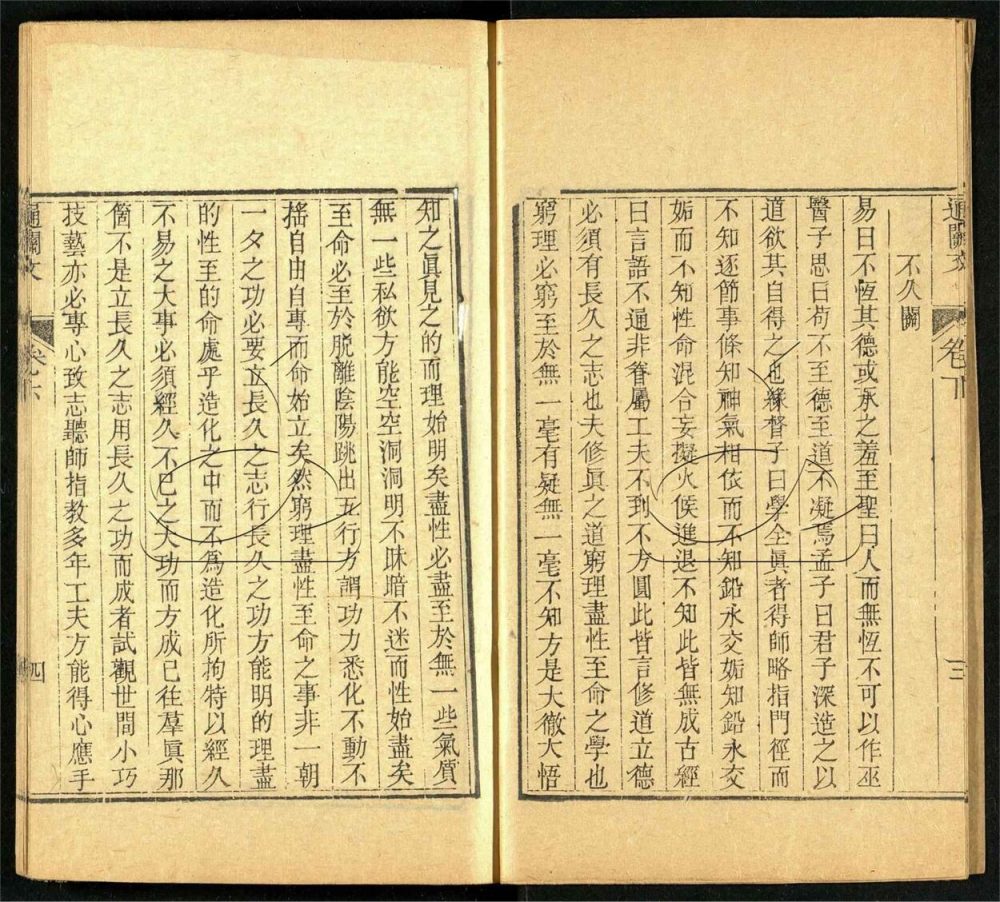 通關文
卷下
三
不久關
易曰不恆其德或承之羞至聖曰人而無恆不可以作巫
醫子思曰苟不至德至道不凝焉孟子曰君子深造之以
道欲其自得之也緣督子曰學全眞者得師略指門徑而
不知逐節事條知神氣相依而不知鉛永交姤知鉛永交
姤而不知性命混合妄擬火候進退不知此皆無成古經
曰言語不通非眷屬工夫不到不方圓此皆言修道立德
必須有長久之志也夫修眞之道窮理盡性至命之學也
窮理必窮至於無一毫有疑無一毫不知方是大徹大悟
知之眞見之的而理始明矣盡性必盡至於無一些氣質
無一些私欲方能空空洞洞明不昧暗不迷而性始盡矣
至命必至於脫離陰陽跳出五行方謂功力悉化不動不
搖自由自專而命始立矣然窮理盡性至命之事非一朝
一夕之功必要立長久之志行長久之功方能明的理盡
的性至的命處乎造化之中而不爲造化所拘特以經久
不易之大事必須經久不已之大功而方成已往羣眞那
箇不是立長久之志用長久之功而成者試觀世間小巧
技藝亦必專心致志聽師指教多年工夫方能得心應手
通關文
卷下
四